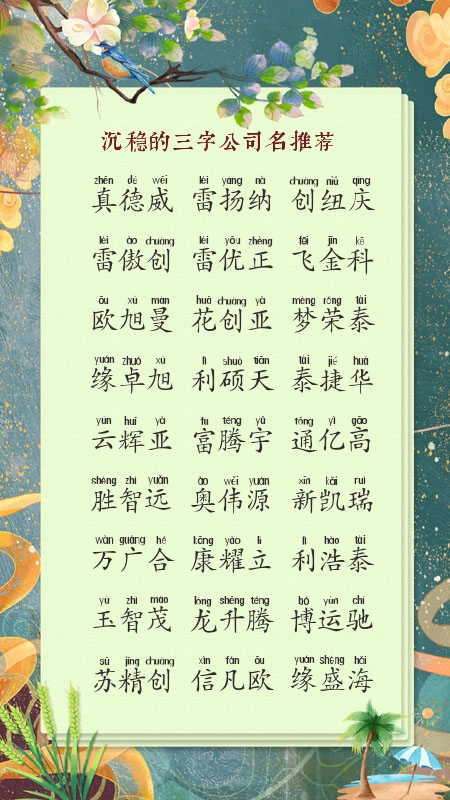 沉稳的三字公司名推荐
zhēn dé wēi léi yáng nà chuàng niǔ qìng
真德威 雷扬纳 创纽庆
léi ào chuàng léi yōu zhèng fēi jīn kē
雷傲创 雷优正 飞金科
ōu xù màn huā chuàng yà mèng róng tài
欧旭曼 花创亚 梦荣泰
yuán zhuó xù lì shuò tiān tài jié huá
缘卓旭 利硕天 泰捷华
yún huī yà fù téng yǔ tōng yì gāo
云辉亚 富腾宇 通亿高
shèng zhì yuǎn ào wěi yuán xīn kǎi ruì
胜智远 奥伟源 新凯瑞
wàn guǎng hé kāng yào lì lì hào tài
万广合 康耀立 利浩泰
yù zhì mào lóng shēng téng bó yùn chí
玉智茂 龙升腾 博运驰
sū jīng chuàng xìn fán ōu yuán shèng hǎi
苏精创 信凡欧 缘盛海